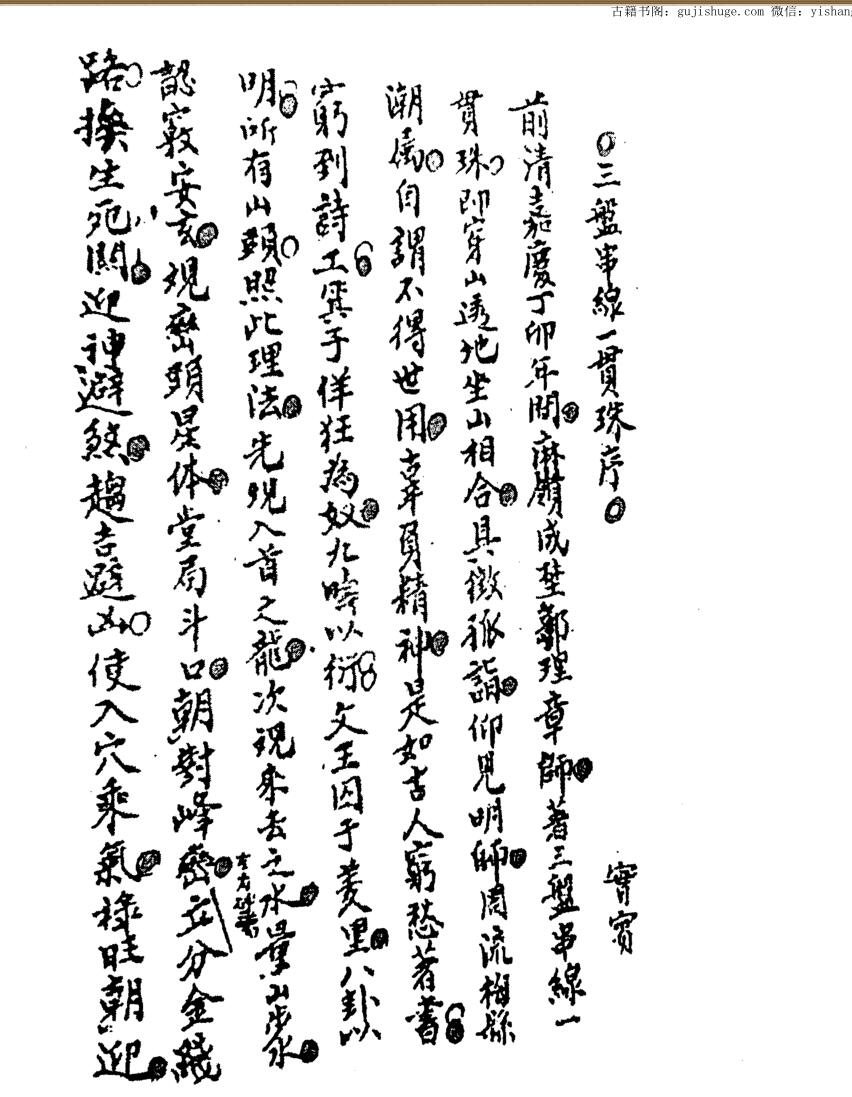 古籍书阁：gujishuge.com 微信：yishang
三盤串線一貫珠序
寶賓
前清嘉慶丁卯年間麻嶺成埜鄒理章師著三盤串線一
貫珠即穿山透地坐山相合具徵孤詣仰見明師周流梅縣
潮屬自謂不得世用辜負精神是如古人窮愁著書
窮到詩工箕子佯狂為奴九疇以衍文王囚于羑里八卦以
明所有山頭照此理法先覌入首之龍次覌來去之水量山步水
左右砂
龍竅安玄覌巒頭星体堂局斗口朝對峰巒立分金綫
路換生死關迎神避煞趨吉避凶使入穴乘氣祿旺朝迎